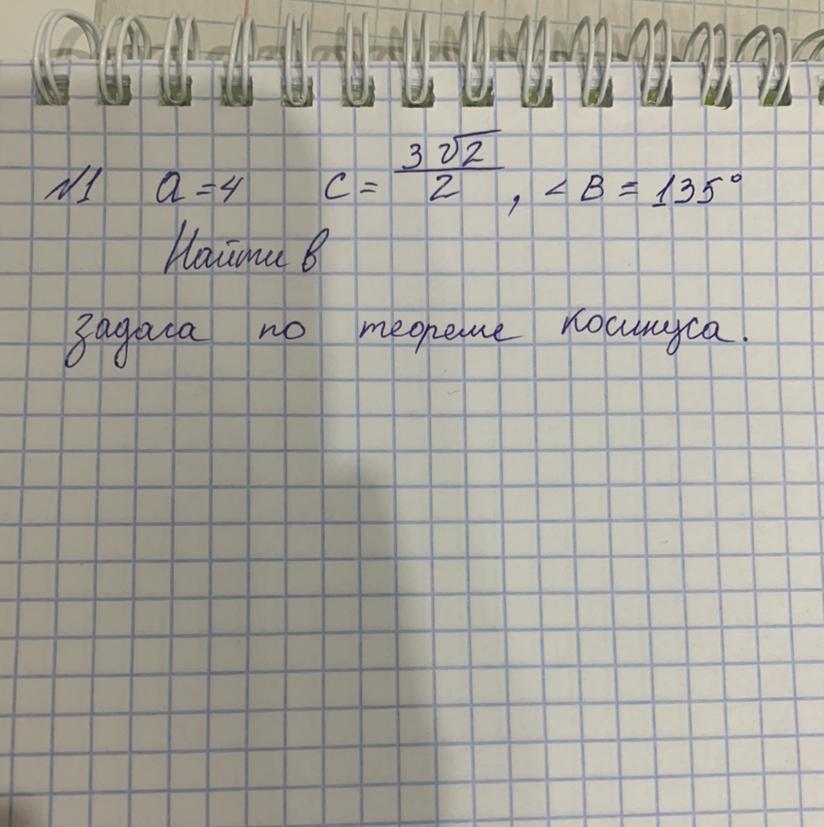 №1 a = 4 c = 3√2/2, ∠B = 135°
Найти в
задача по теореме косинуса.